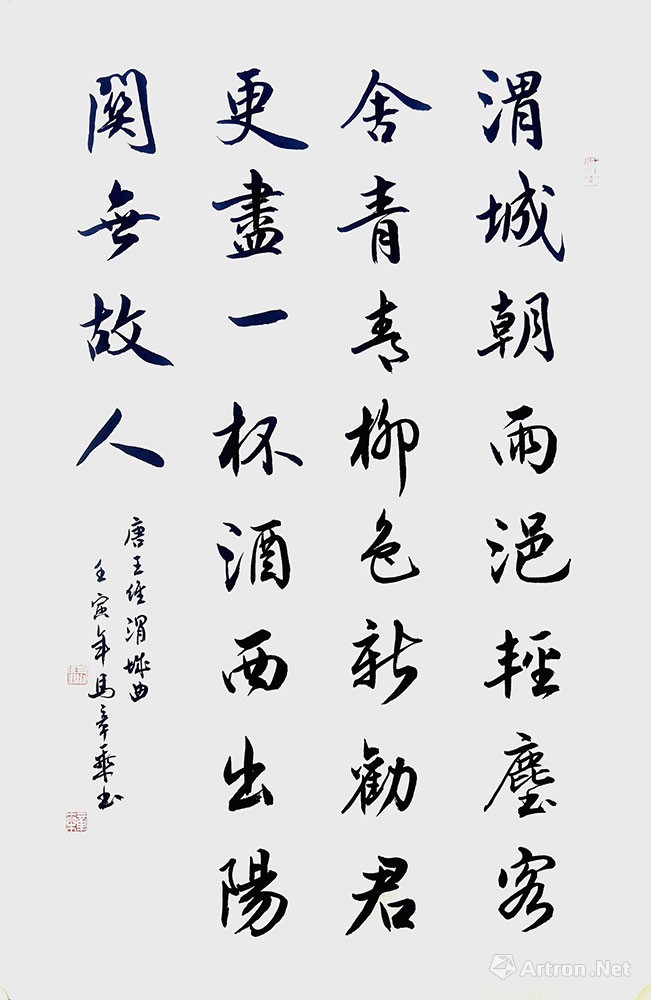 渭城朝雨浥輕塵客
舍青青柳色新勸君
更盡一杯酒西出陽
關無故人
唐王維渭城曲
壬寅年馬章乘书
Artron.Net